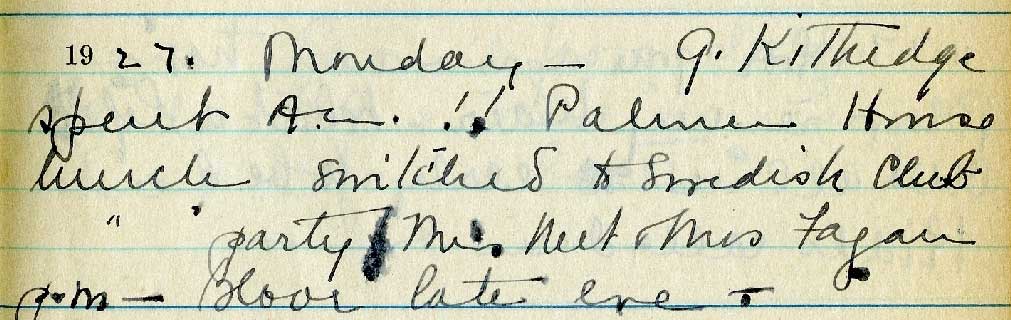 1927. Monday — G. Kittredge
spent A.M. !! Palmer House
lunch switched to Swedish Club
" party Mrs. & Mrs Fagan
p.m — late eve —